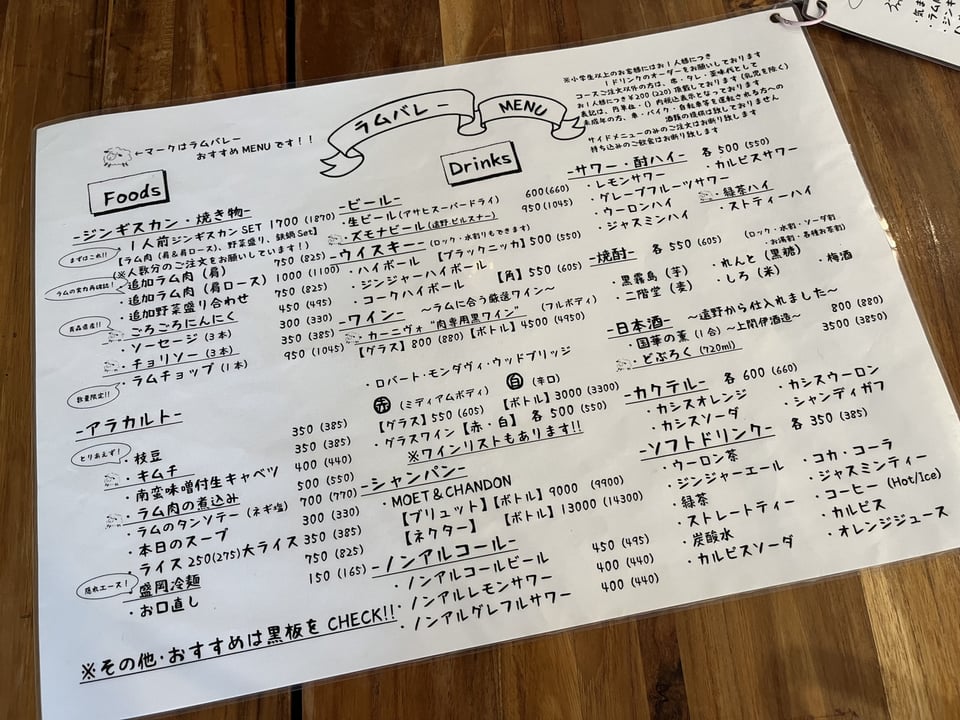 ラムバレー MENU
←マークはラムバレー
おすすめMENUです！！
※小学生以上のお客様にはお1人様につき
1ドリンクのオーダーをお願いしております
コースご注文以外の方は、席・タレ・薬味代として
お1人様につき¥200(220)頂戴しております(乳児を除く)
表記は、円単位・()内税込表示となっております
未成年の方、車・バイク・自転車等を運転される方への
酒類の提供は致しておりません
サイドメニューのみのご注文はお断り致します
持ち込みのご飲食はお断り致します
Foods
-ジンギスカン・焼き物-
まずはこれ!!
・1人前ジンギスカンSET 1700 (1870)
【ラム肉(肩&肩ロース)、野菜盛り、鉄鍋Set】
(※人数分のご注文をお願いします！)
ラムの実力再確認！
・追加ラム肉(肩) 750 (825)
・追加ラム肉(肩ロース) 1000 (1100)
・追加野菜盛り合わせ 750 (825)
青森県産!!
・ごろごろにんにく 450 (495)
・ソーセージ(3本) 300 (330)
・チョリソー(3本) 350 (385)
数量限定!!
・ラムチョップ(1本) 950 (1045)
-アラカルト-
とりあえず！
・枝豆 350 (385)
・キムチ 350 (385)
・南蛮味噌付生キャベツ 400 (440)
・ラム肉の煮込み 500 (550)
・ラムのタンソテー(ネギ塩) 700 (770)
・本日のスープ 300 (330)
・ライス250(275)大ライス 350 (385)
隠れエース！
・盛岡冷麺 750 (825)
・お口直し 150 (165)
※その他・おすすめは黒板をCHECK!!
Drinks
-ビール-
・生ビール(アサヒスーパードライ) 600(660)
・ズモナビール(遠野・ピルスナー) 950(1045)
-ウイスキー-(ロック・水割りもできます)
・ハイボール 【ブラックニッカ】500 (550)
・ジンジャーハイボール
・コークハイボール 【角】550 (605)
-ワイン- ～ラムに合う厳選ワイン～
・カーニヴォ“肉専用黒ワイン” (フルボディ)
【グラス】800 (880)【ボトル】4500 (4950)
・ロバート・モンダヴィ・ウッドブリッジ
赤 (ミディアムボディ) 白 (辛口)
【グラス】550 (605) 【ボトル】3000 (3300)
・グラスワイン【赤・白】各500 (550)
※ワインリストもあります!!
-シャンパン-
・MOET & CHANDON
【ブリュット】【ボトル】9000 (9900)
【ネクター】 【ボトル】13000 (14300)
-ノンアルコール-
・ノンアルコールビール 450 (495)
・ノンアルレモンサワー 400 (440)
・ノンアルグレフルサワー 400 (440)
-サワー・酎ハイ- 各500 (550)
・レモンサワー ・カルピスサワー
・グレープフルーツサワー
・ウーロンハイ ・緑茶ハイ
・ジャスミンハイ ・ストティーハイ
-焼酎- 各550 (605) (ロック・水割・ソーダ割
・お湯割・各種お茶割)
・黒霧島(芋) ・れんと(黒糖) ・梅酒
・二階堂(麦) ・しろ(米)
-日本酒- ～遠野から仕入れました～
・国華の薫(1合)～上閉伊酒造～ 800 (880)
・どぶろく(720ml) 3500 (3850)
-カクテル- 各600 (660)
・カシスオレンジ ・カシスウーロン
・カシスソーダ ・シャンディガフ
-ソフトドリンク- 各350 (385)
・ウーロン茶 ・コカ・コーラ
・ジンジャーエール ・ジャスミンティー
・緑茶 ・コーヒー(Hot/Ice)
・ストレートティー ・カルピス
・炭酸水 ・オレンジジュース
・カルピスソーダ